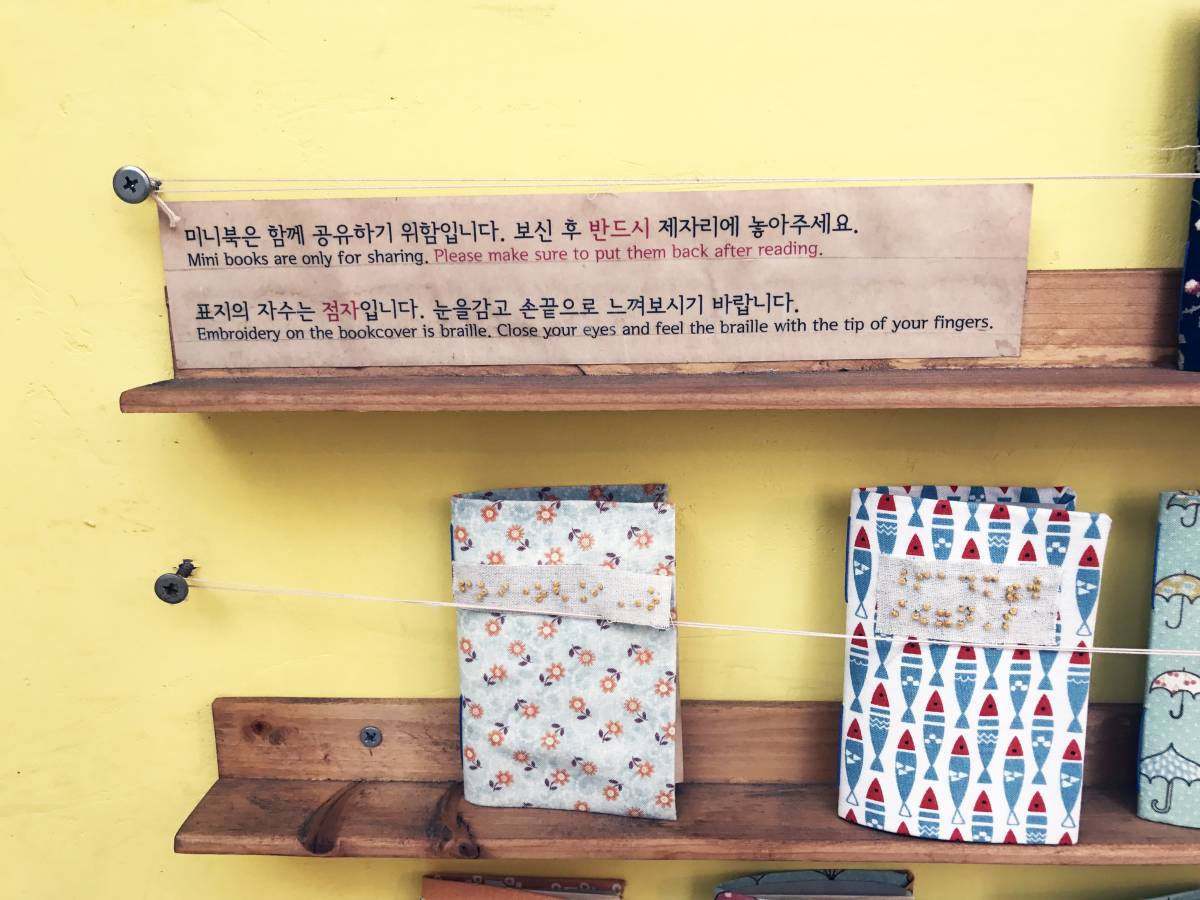 미니북은 함께 공유하기 위함입니다. 보신 후 반드시 제자리에 놓아주세요.
Mini books are only for sharing. Please make sure to put them back after reading.
표지의 자수는 점자입니다. 눈을감고 손끝으로 느껴보시기 바랍니다.
Embroidery on the bookcover is braille. Close your eyes and feel the braille with the tip of your fingers.